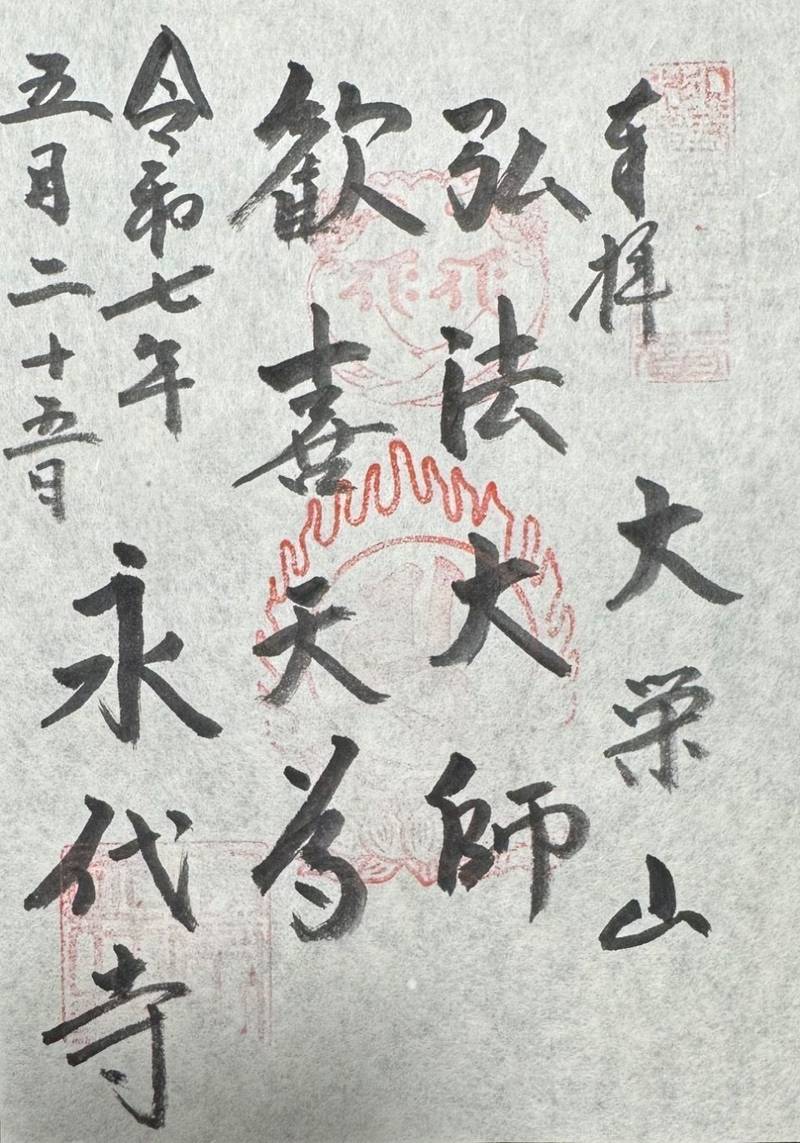 奉拝
大栄山
弘法大師
歓喜天
令和七年
五月二十五日
永代寺